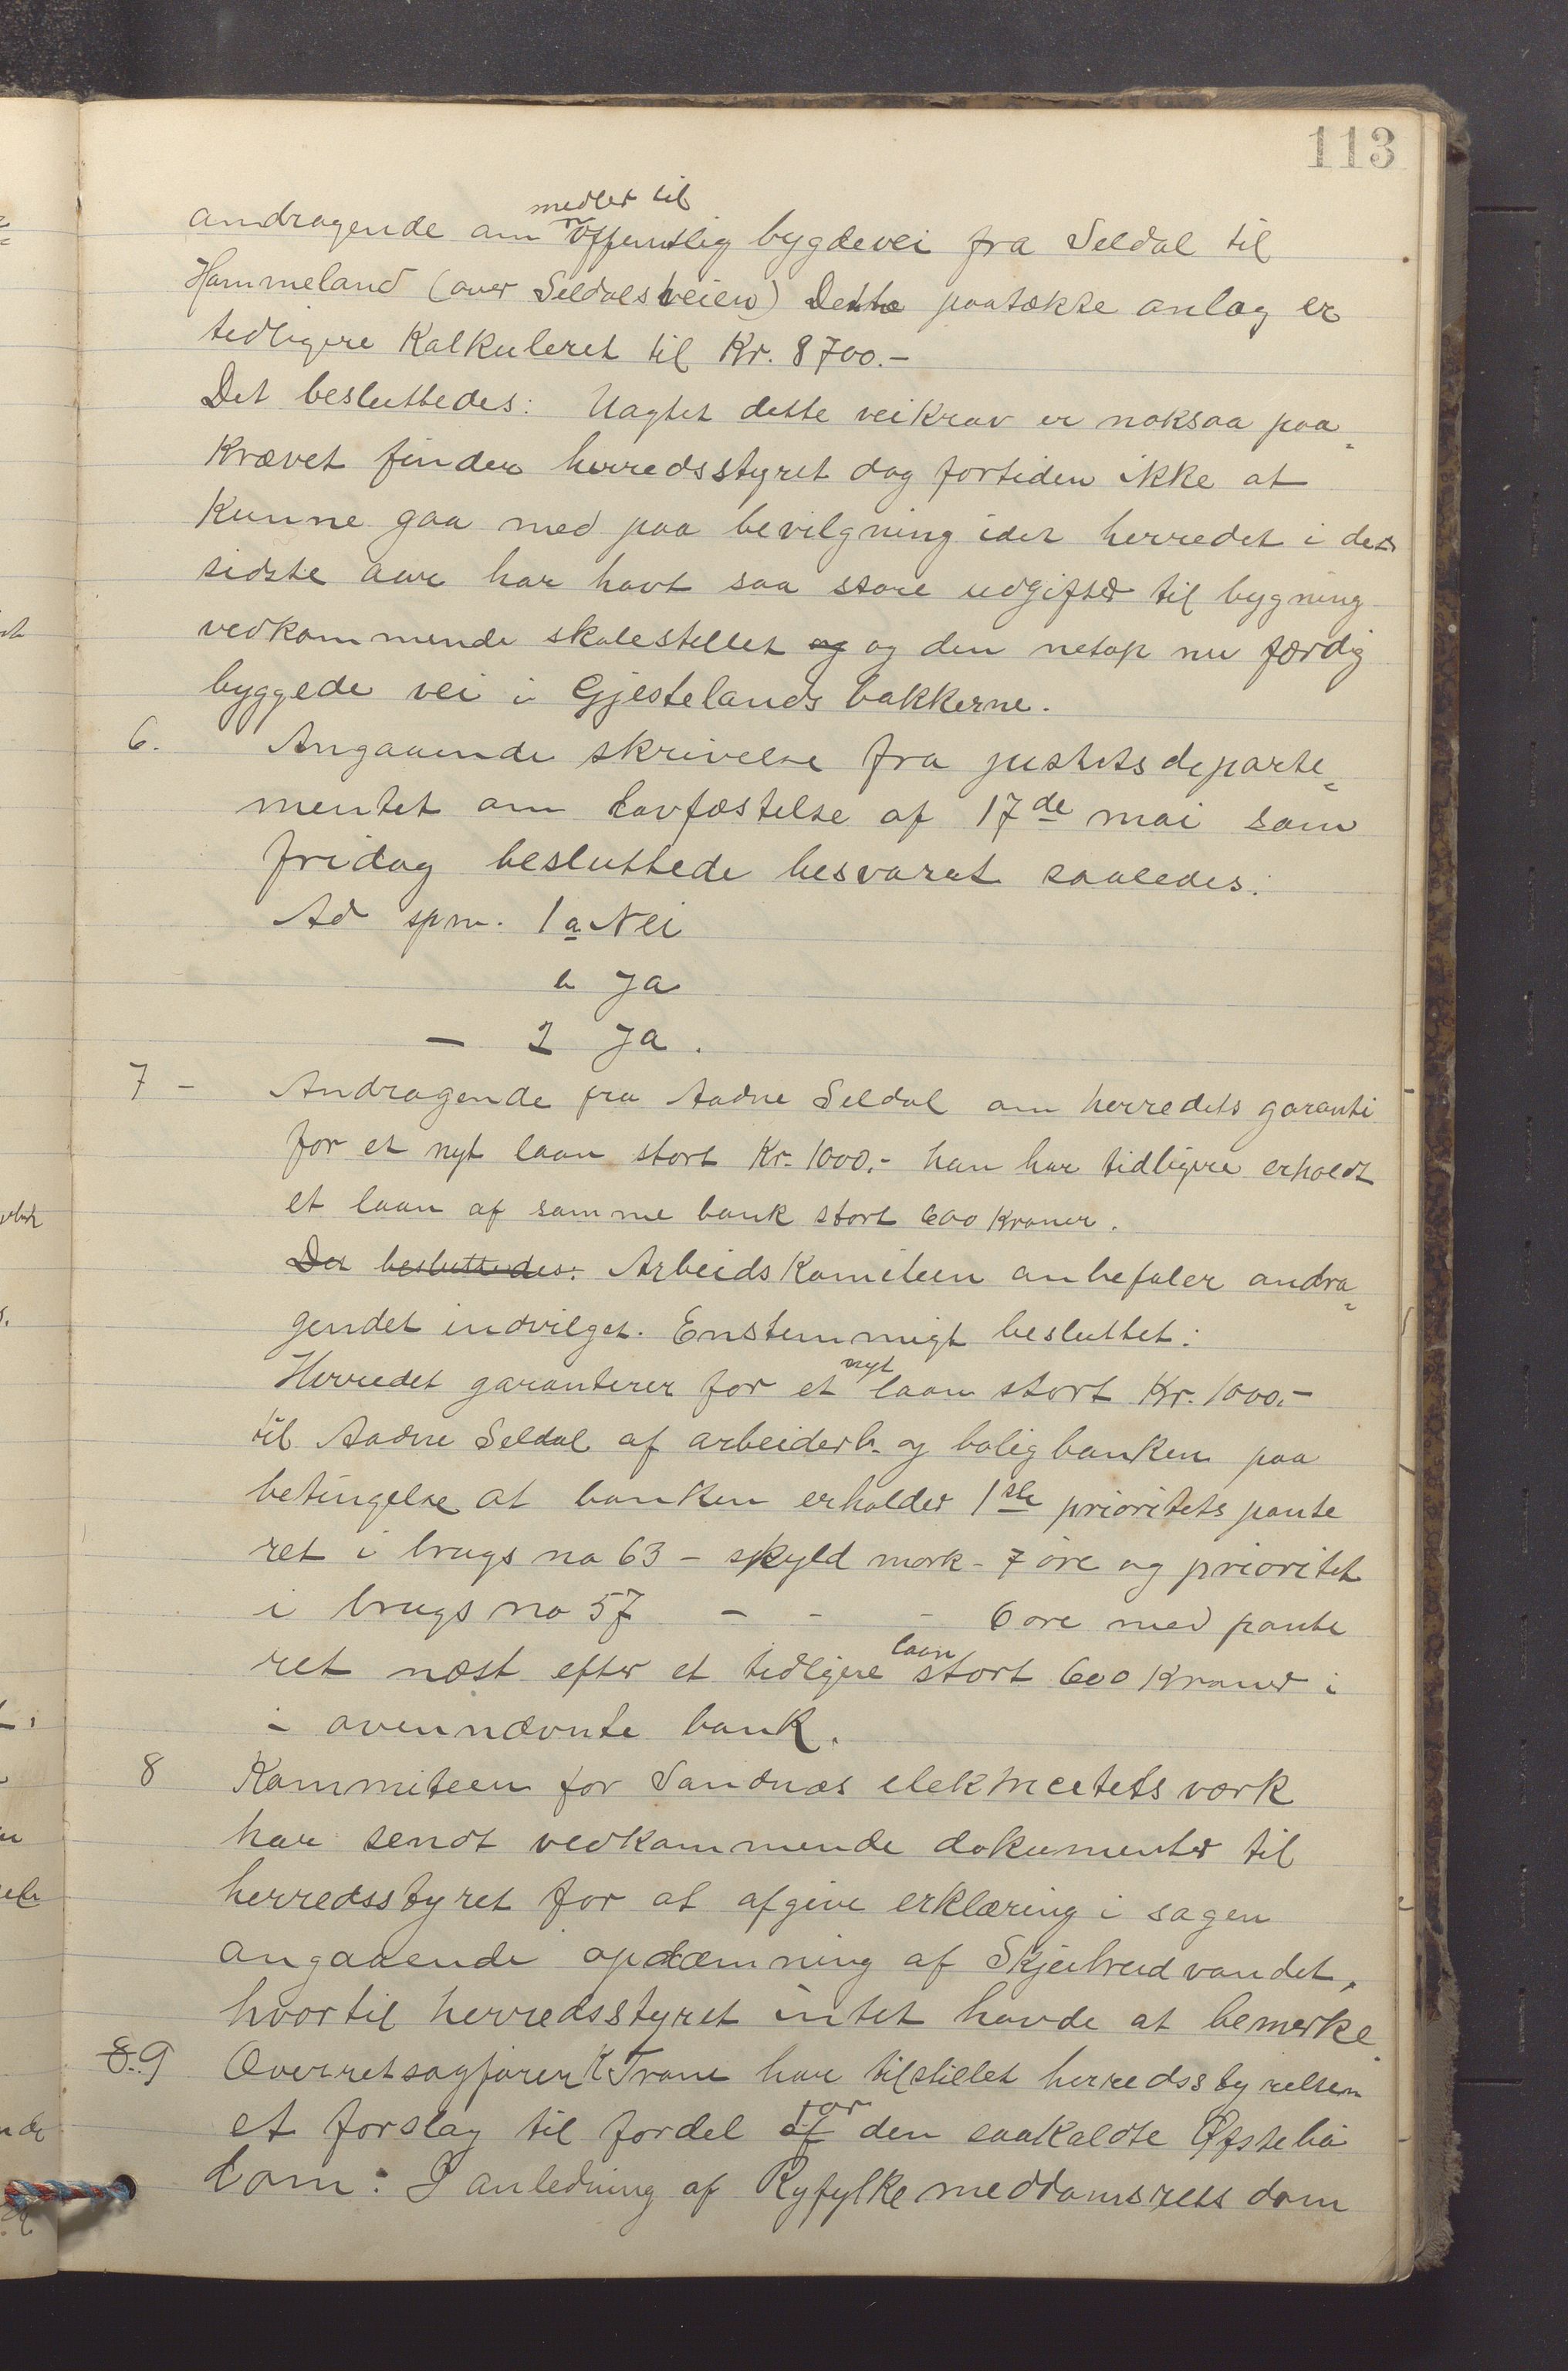 113
andragende om midler til offentlig bygdevei fra Seldal til
Hammeland (over Seldalsheien) Dette paatækte anlæg er
tidligere Kalkuleret til Kr. 8700.-
Det besluttedes: Uagtet dette veikrav er noksaa paa-
krævet finder herredsstyret dog fortiden ikke at
kunne gaa med paa bevilgning idet herredet i des
sidste aar har havt saa store udgifter til bygning
vedkommende skolestellet og og den netop nu færdig
byggede vei i Gjestelands bakkerne.
6. Angaaende skrivelse fra justitsdeparte-
mentet om lovfæstelse af 17de mai som
fridag besluttede besvaret saaledes:
Ad spm. 1a Nei
b Ja
- 2 Ja.
7 - Andragende fra Aadne Seldal om herredets garanti
for et nyt laan stort Kr. 1000.- han har tidligere erholdt
et laan af samme bank stort 600 Kroner.
Det besluttedes: Arbeidskomiteen anbefaler andra-
gendet indvilget. Enstemmigt besluttet:
Herredet garanterer for et nyt laan stort Kr. 1000.-
til Aadne Seldal af arbeiderb. og boligbanken paa
betingelse at banken erholder 1ste prioritets pante
ret i brugs no 63 - skyld mark - 7 øre og prioritet
i brugs no 57 - - - 6 øre med pante
ret næst efter et tidligere laan stort 600 Kroner i
i ovennævnte bank.
8 Kommiteen for Sandnæs elektricitetsværk
har sendt vedkommende dokumenter til
herredsstyret for at afgive erklæring i sagen
angaaende opdæmning af Skjelbreidvandet,
hvortil herredsstyret intet havde at bemerke.
8. 9 Overretsagfører K Trane har tilstillet herredsstyrelsen
et forslag til fordel af for den saakaldte Øfstebø
dom: I anledning af Ryfylke meddomsrets dom